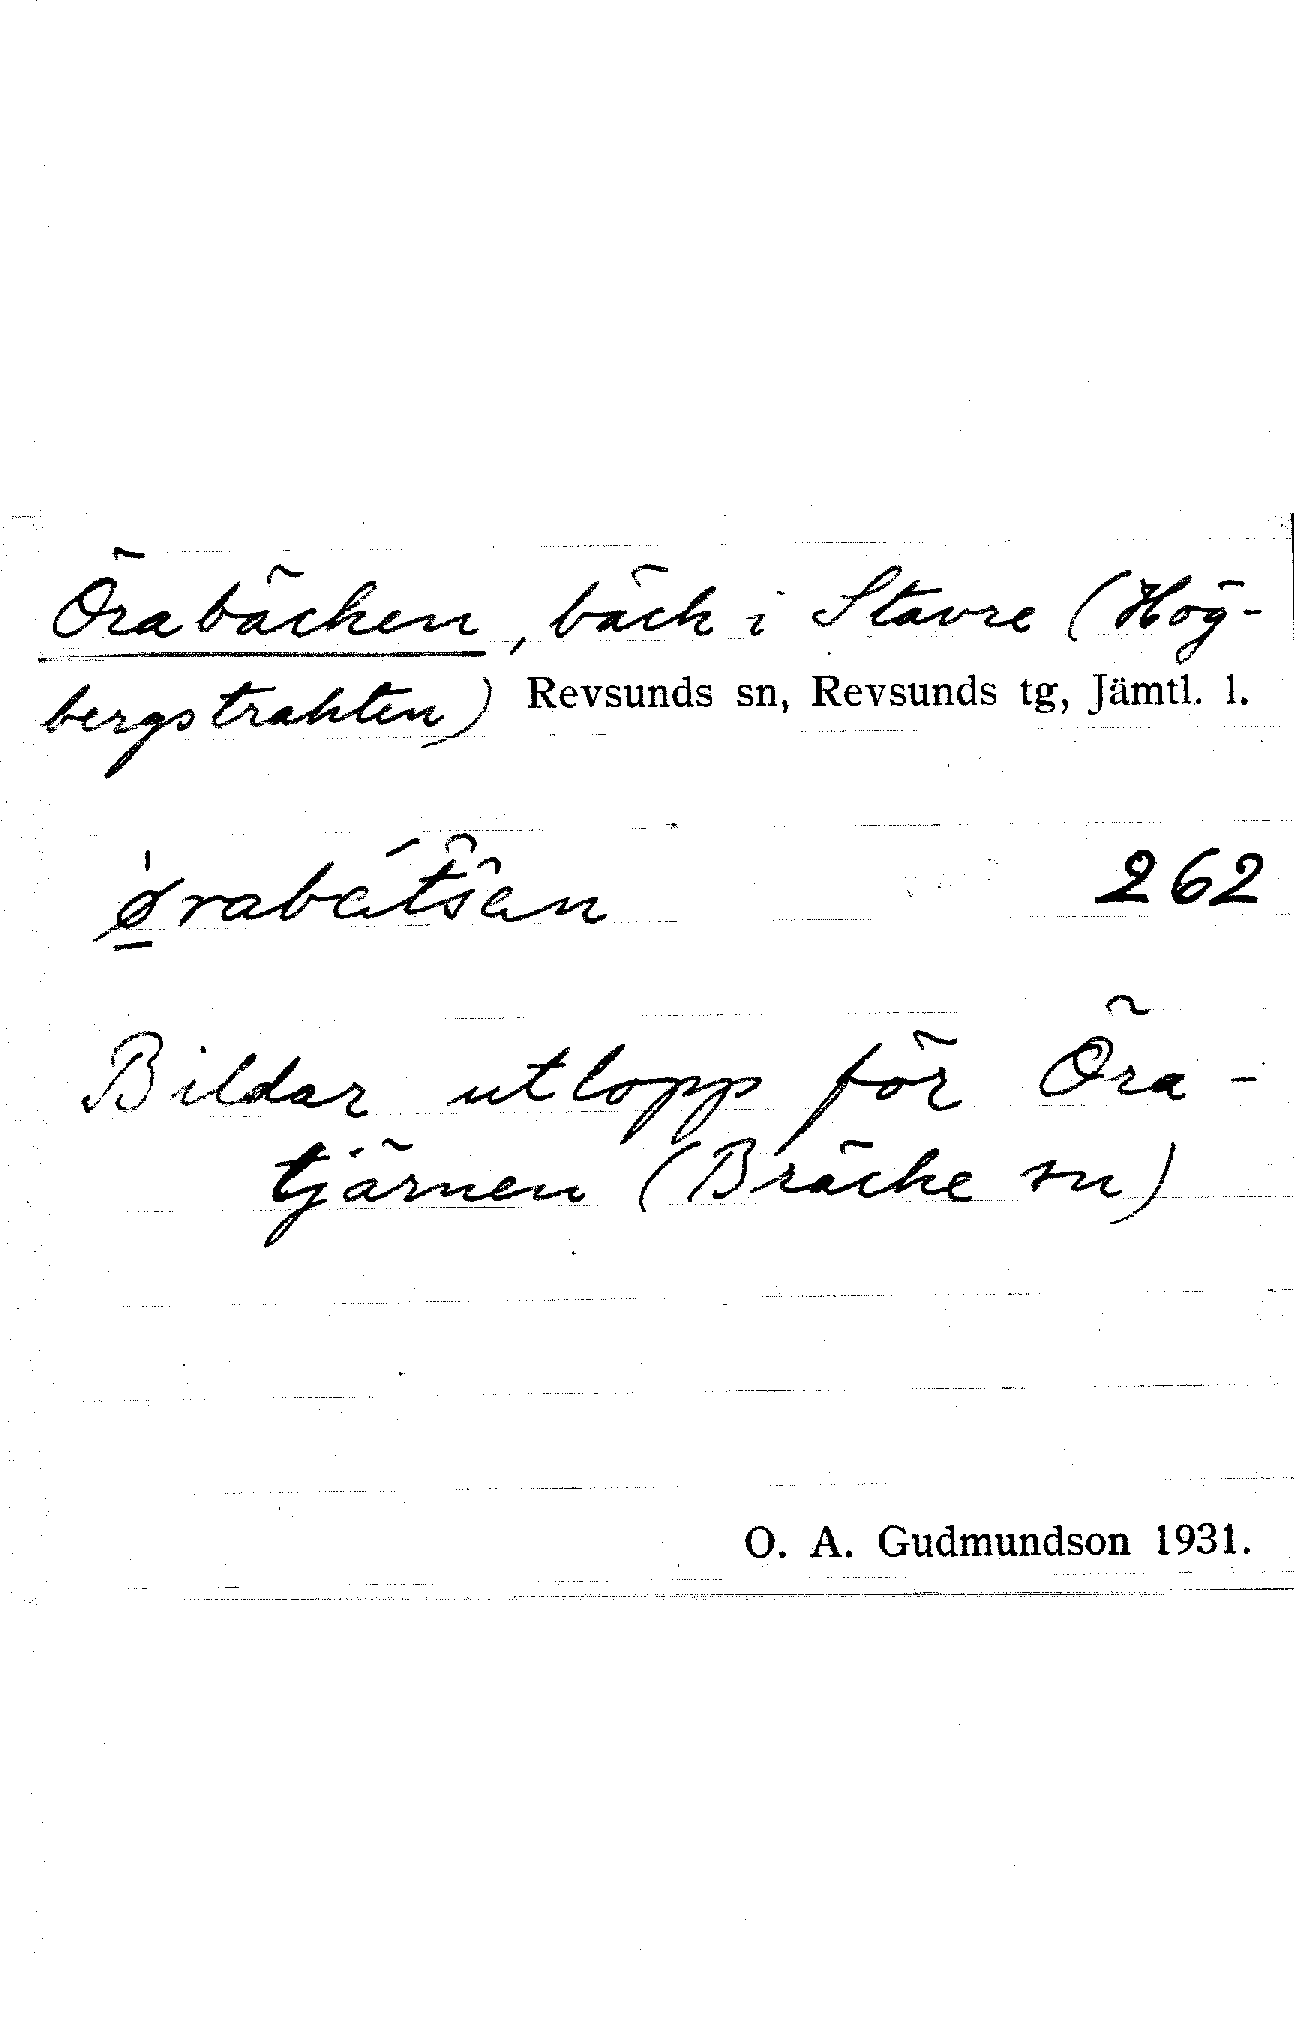 Örabäcken, bäck i Stavre (Hög-
bergstrakten) Revsunds sn, Revsunds tg, Jämtl. l.
262
Bildar utlopp för Öra-
tjärnen (Bräcke sn)
O. A. Gudmundson 1931.